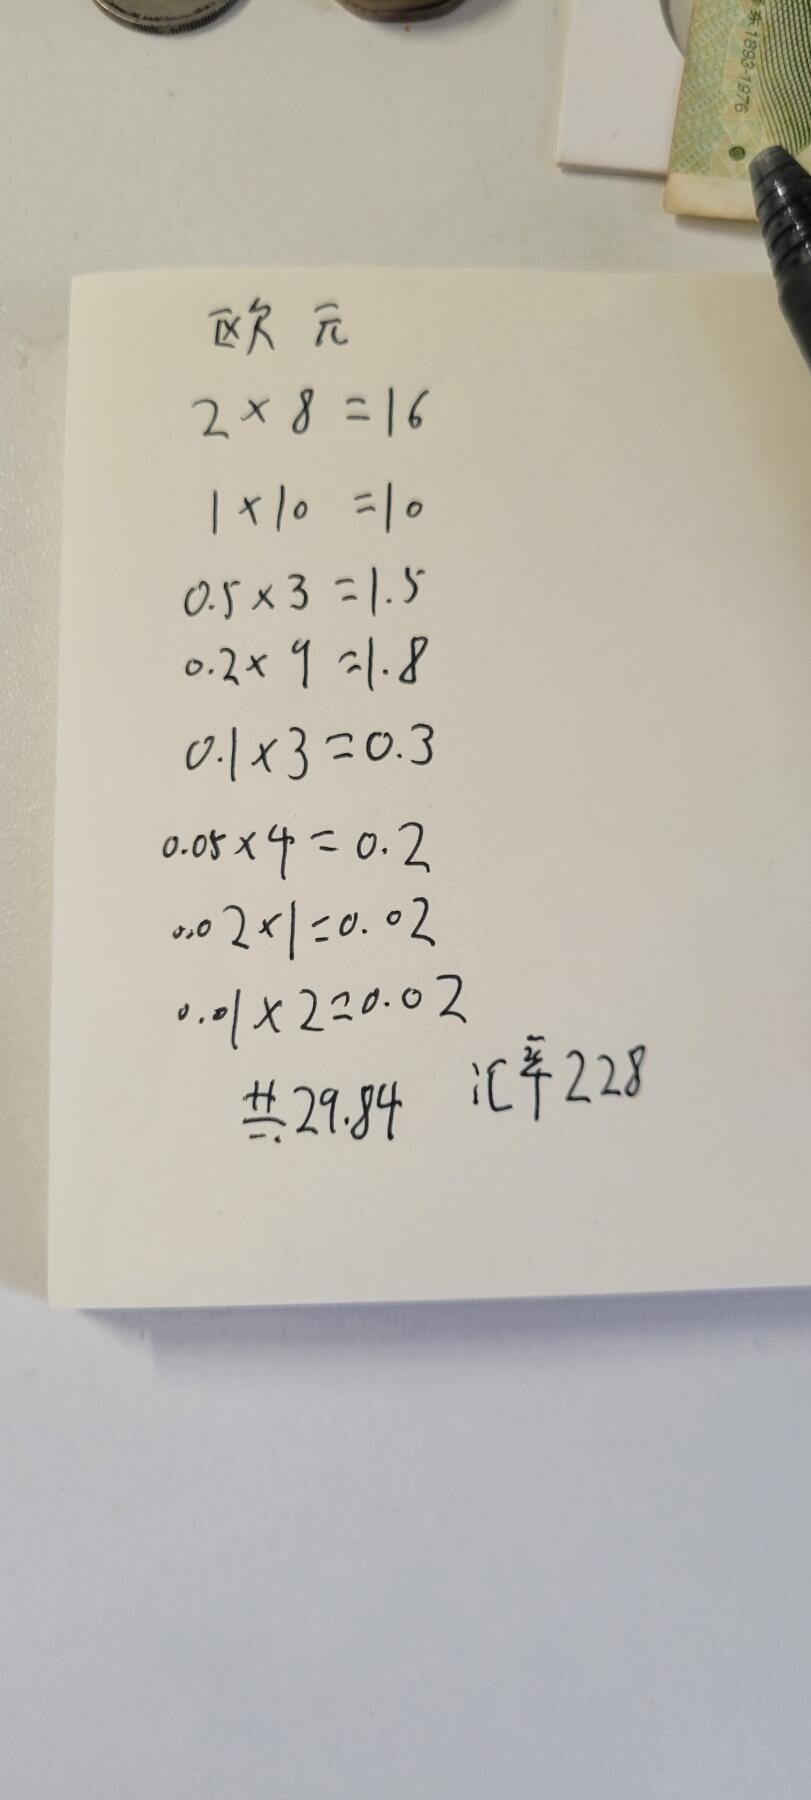 欧元
2×8=16
1×10=10
0.5×3=1.5
0.2×9=1.8
0.1×3=0.3
0.05×4=0.2
0.02×1=0.02
0.01×2=0.02
共29.84 汇率228
1893-1976